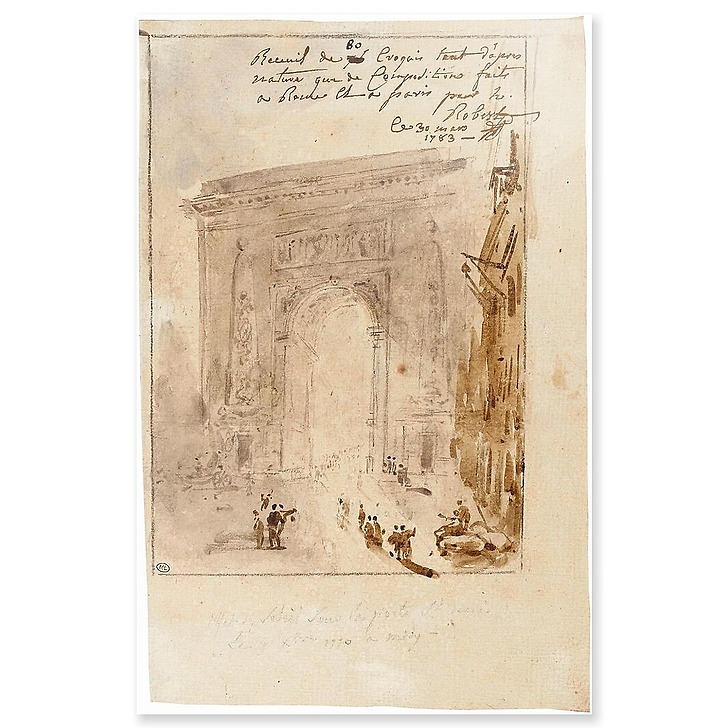 80
Recueil de Croquis tant d'apres
nature que de Composition faits
a Rome Et a paris par h.
Robert
le 30 mars
1783 —
ML
Soleil Sous la porte St denis
1790 a midy —